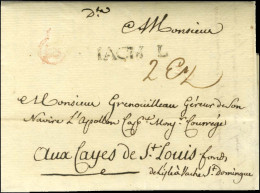 Dte
A Monsieur
JACM L
Monsieur Grenouilleau Géreur de Son
Navire L'apollon Capne Mony Courrège
aux Cayes de St Louis fonds
de L'isle à Vache St Domingue